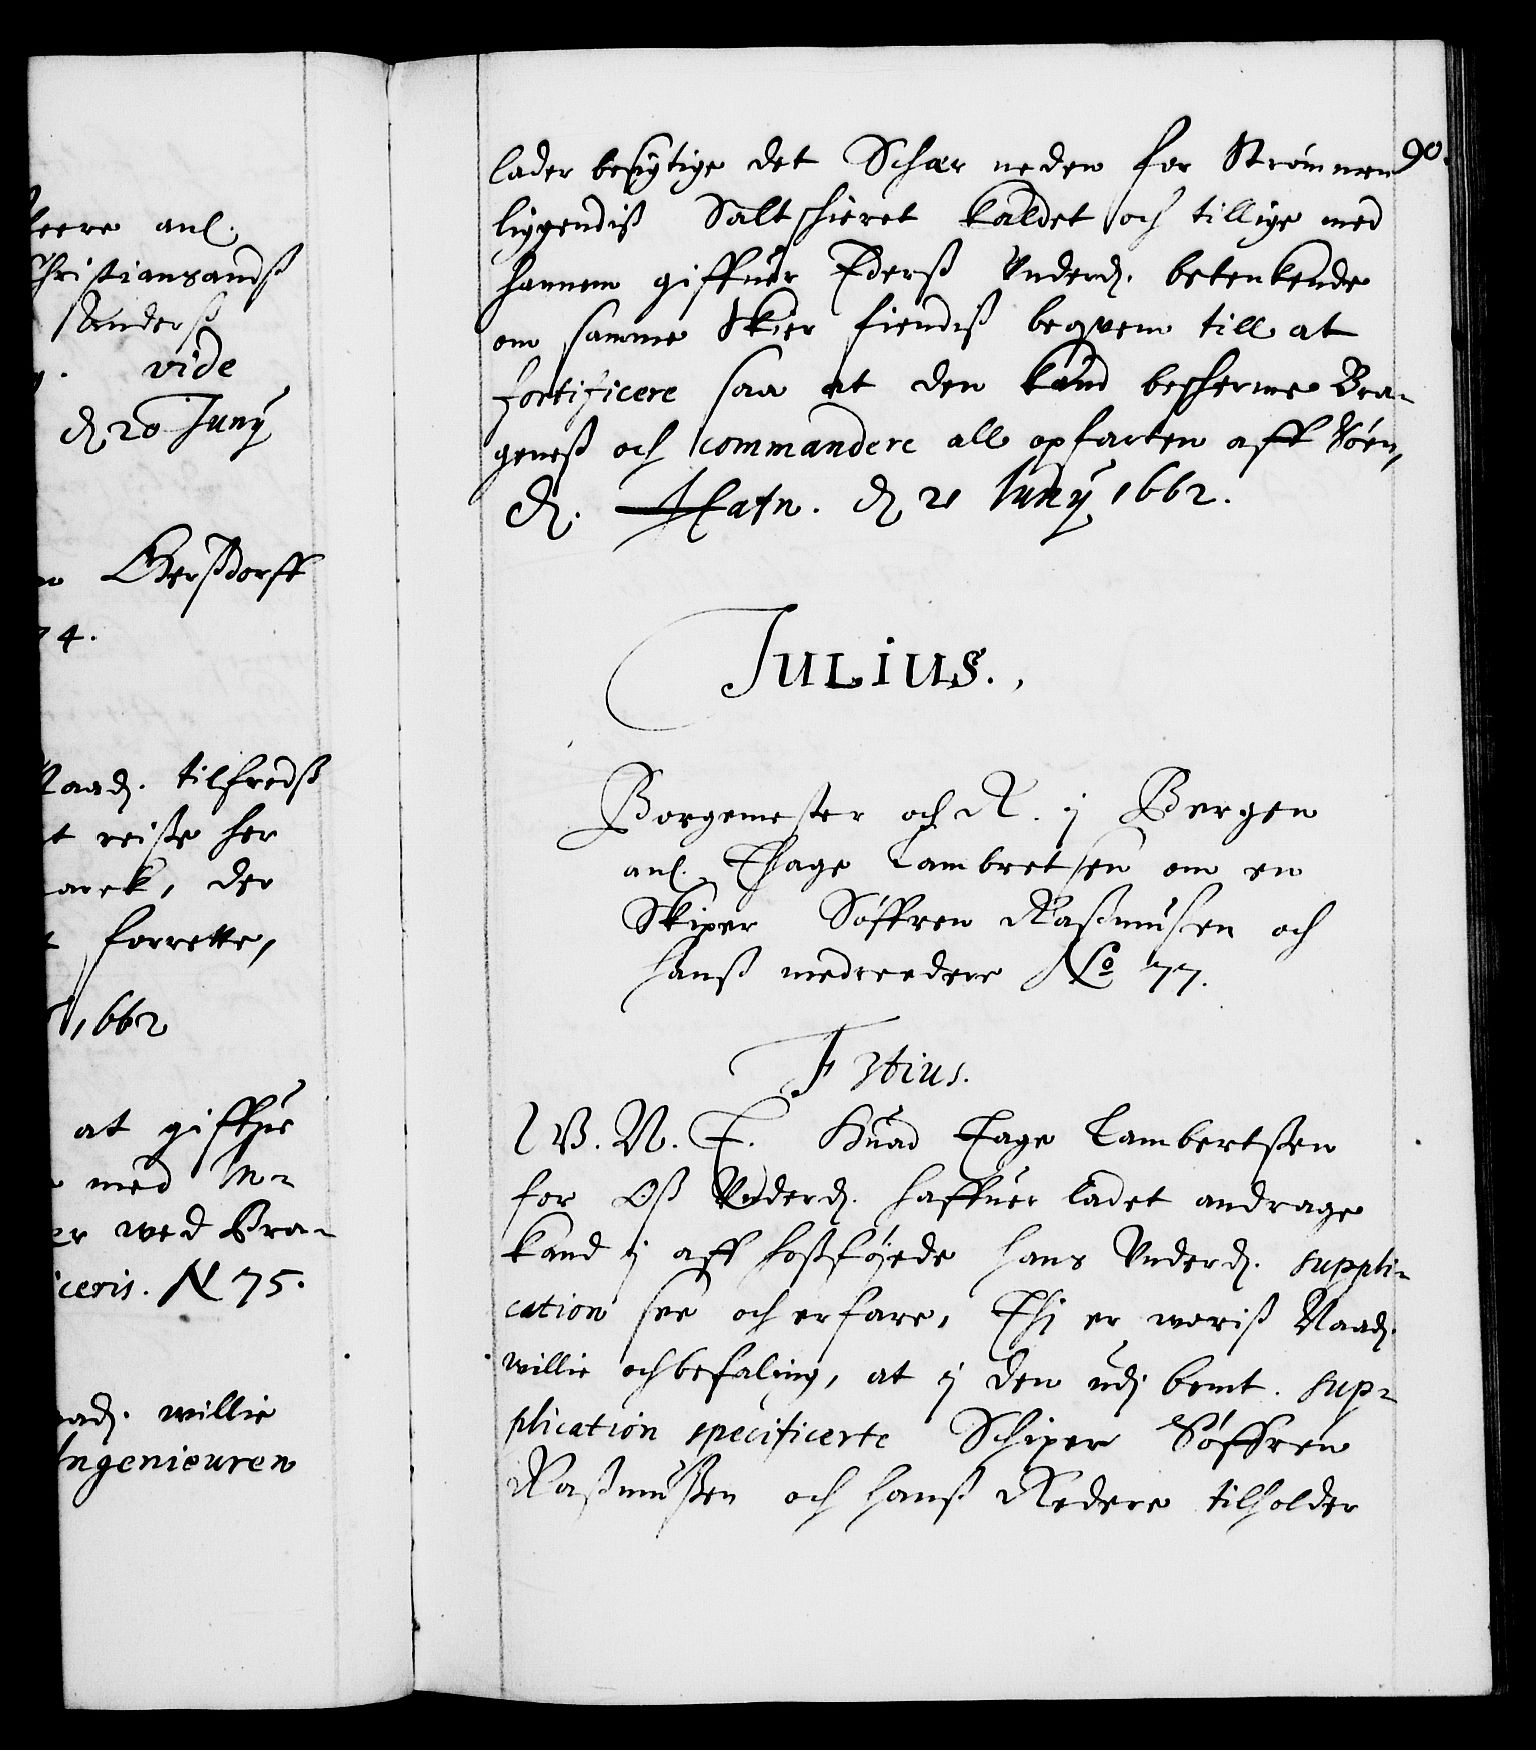 leere anl.
Christiansands
Anders
vide
d 20 Juny
Gersdorff
74.
Naad. tilfreds
at reise her
marck, der
forrette,
1662
at giffue
med In-
er wed Bra-
ceris. N 75.
Naad. willie
Ingenieuren
90.
lader besigtige det Schær neden for Strömmen
liggendis Salt skieret kaldet och tillige med
hannem giffuer Eders Underd. betenkende
om samme Skier fiendis beqvem till at
fortificere saa at den kand bescherme Bra-
genes och commandere all opfarten aff Söen,
d. Hafn. d 21 Juny 1662.
JULIUS.
Borgemester och R. i Bergen
anl. Thage Lambretsen om en
Skiper Söffren Rasmussen och
hans medreedere No 77.
F 3tius.
W. N. T. Huad Tage Lambertsen
for Os Underd. haffuer ladet andrage
kand i aff hosföyede hans Underd. suppli-
cation see och erfare, Thi er woris Naad.
willie och befaling, at i den udi bemt. sup-
plication specificerte Schiper Söffren
Rasmussen och hans Redere tilholder